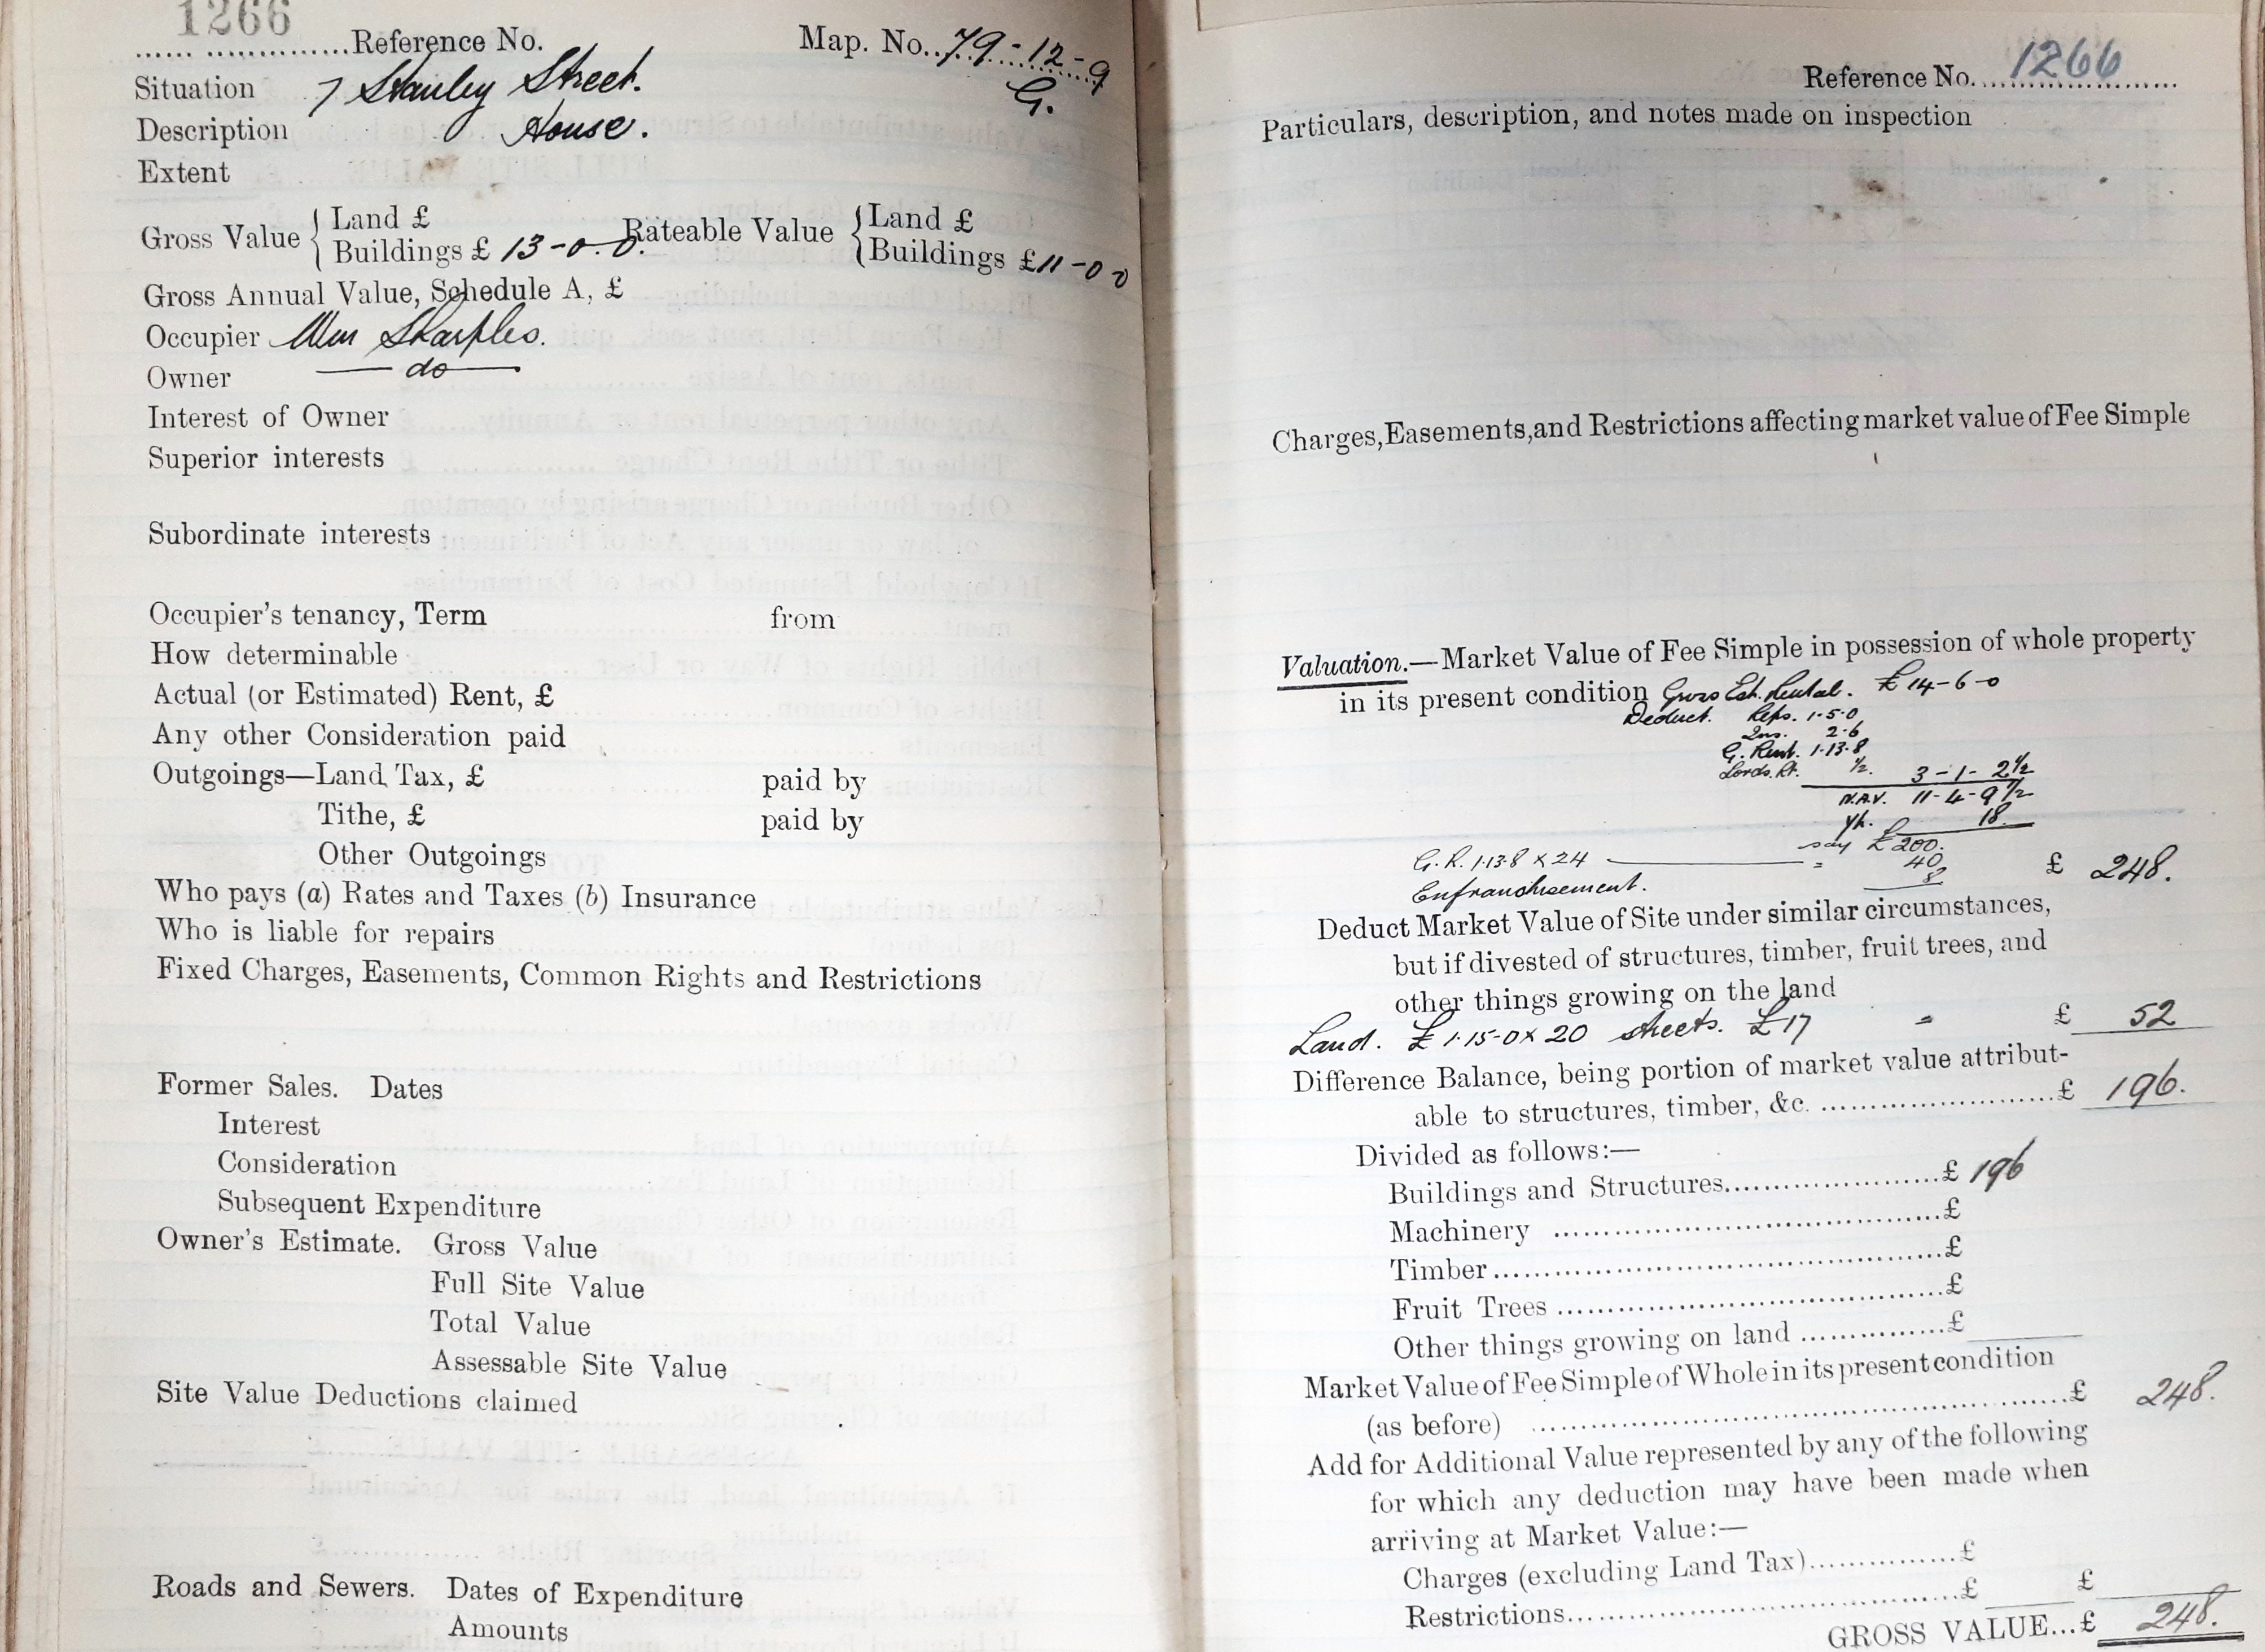 1266
...... ..............Reference No. Map. No. 79-12-9
G.
Situation 7 Stanley Street.
Description House.
Extent
Gross Value { Land £ Rateable Value { Land £
Buildings £ 13-0.0. Buildings £11-0 0
Gross Annual Value, Schedule A, £
Occupier Wm Sharples.
Owner — do —
Interest of Owner
Superior interests
Subordinate interests
Occupier's tenancy, Term from
How determinable
Actual (or Estimated) Rent, £
Any other Consideration paid
Outgoings—Land Tax, £ paid by
Tithe, £ paid by
Other Outgoings
Who pays (a) Rates and Taxes (b) Insurance
Who is liable for repairs
Fixed Charges, Easements, Common Rights and Restrictions
Former Sales. Dates
Interest
Consideration
Subsequent Expenditure
Owner's Estimate. Gross Value
Full Site Value
Total Value
Assessable Site Value
Site Value Deductions claimed
Roads and Sewers. Dates of Expenditure
Amounts
Reference No. 1266
Particulars, description, and notes made on inspection
Charges, Easements, and Restrictions affecting market value of Fee Simple
Valuation.—Market Value of Fee Simple in possession of whole property
in its present condition Gross Est. Rental. £14-6-0
Deduct. Reps. 1.5.0
Ins. 2.6
G. Rent. 1.13.8
Lords. Rt. ½. 3-1-2½
N.A.V. 11-4-9½
Yh. 18
say £200.
G.R. 1.13.8 x 24 = 40
Enfranchisement. 8 £ 248.
Deduct Market Value of Site under similar circumstances,
but if divested of structures, timber, fruit trees, and
other things growing on the land
Land. £1.15-0 x 20 streets. £17 = £ 52
Difference Balance, being portion of market value attribut-
able to structures, timber, &c. ........................£ 196.
Divided as follows:—
Buildings and Structures......................£ 196
Machinery ......................................£
Timber............................................£
Fruit Trees ......................................£
Other things growing on land ...............£
Market Value of Fee Simple of Whole in its present condition
(as before) ......................................................£ 248.
Add for Additional Value represented by any of the following
for which any deduction may have been made when
arriving at Market Value:—
Charges (excluding Land Tax)...............£
Restrictions.......................................£ £
GROSS VALUE...£ 248.